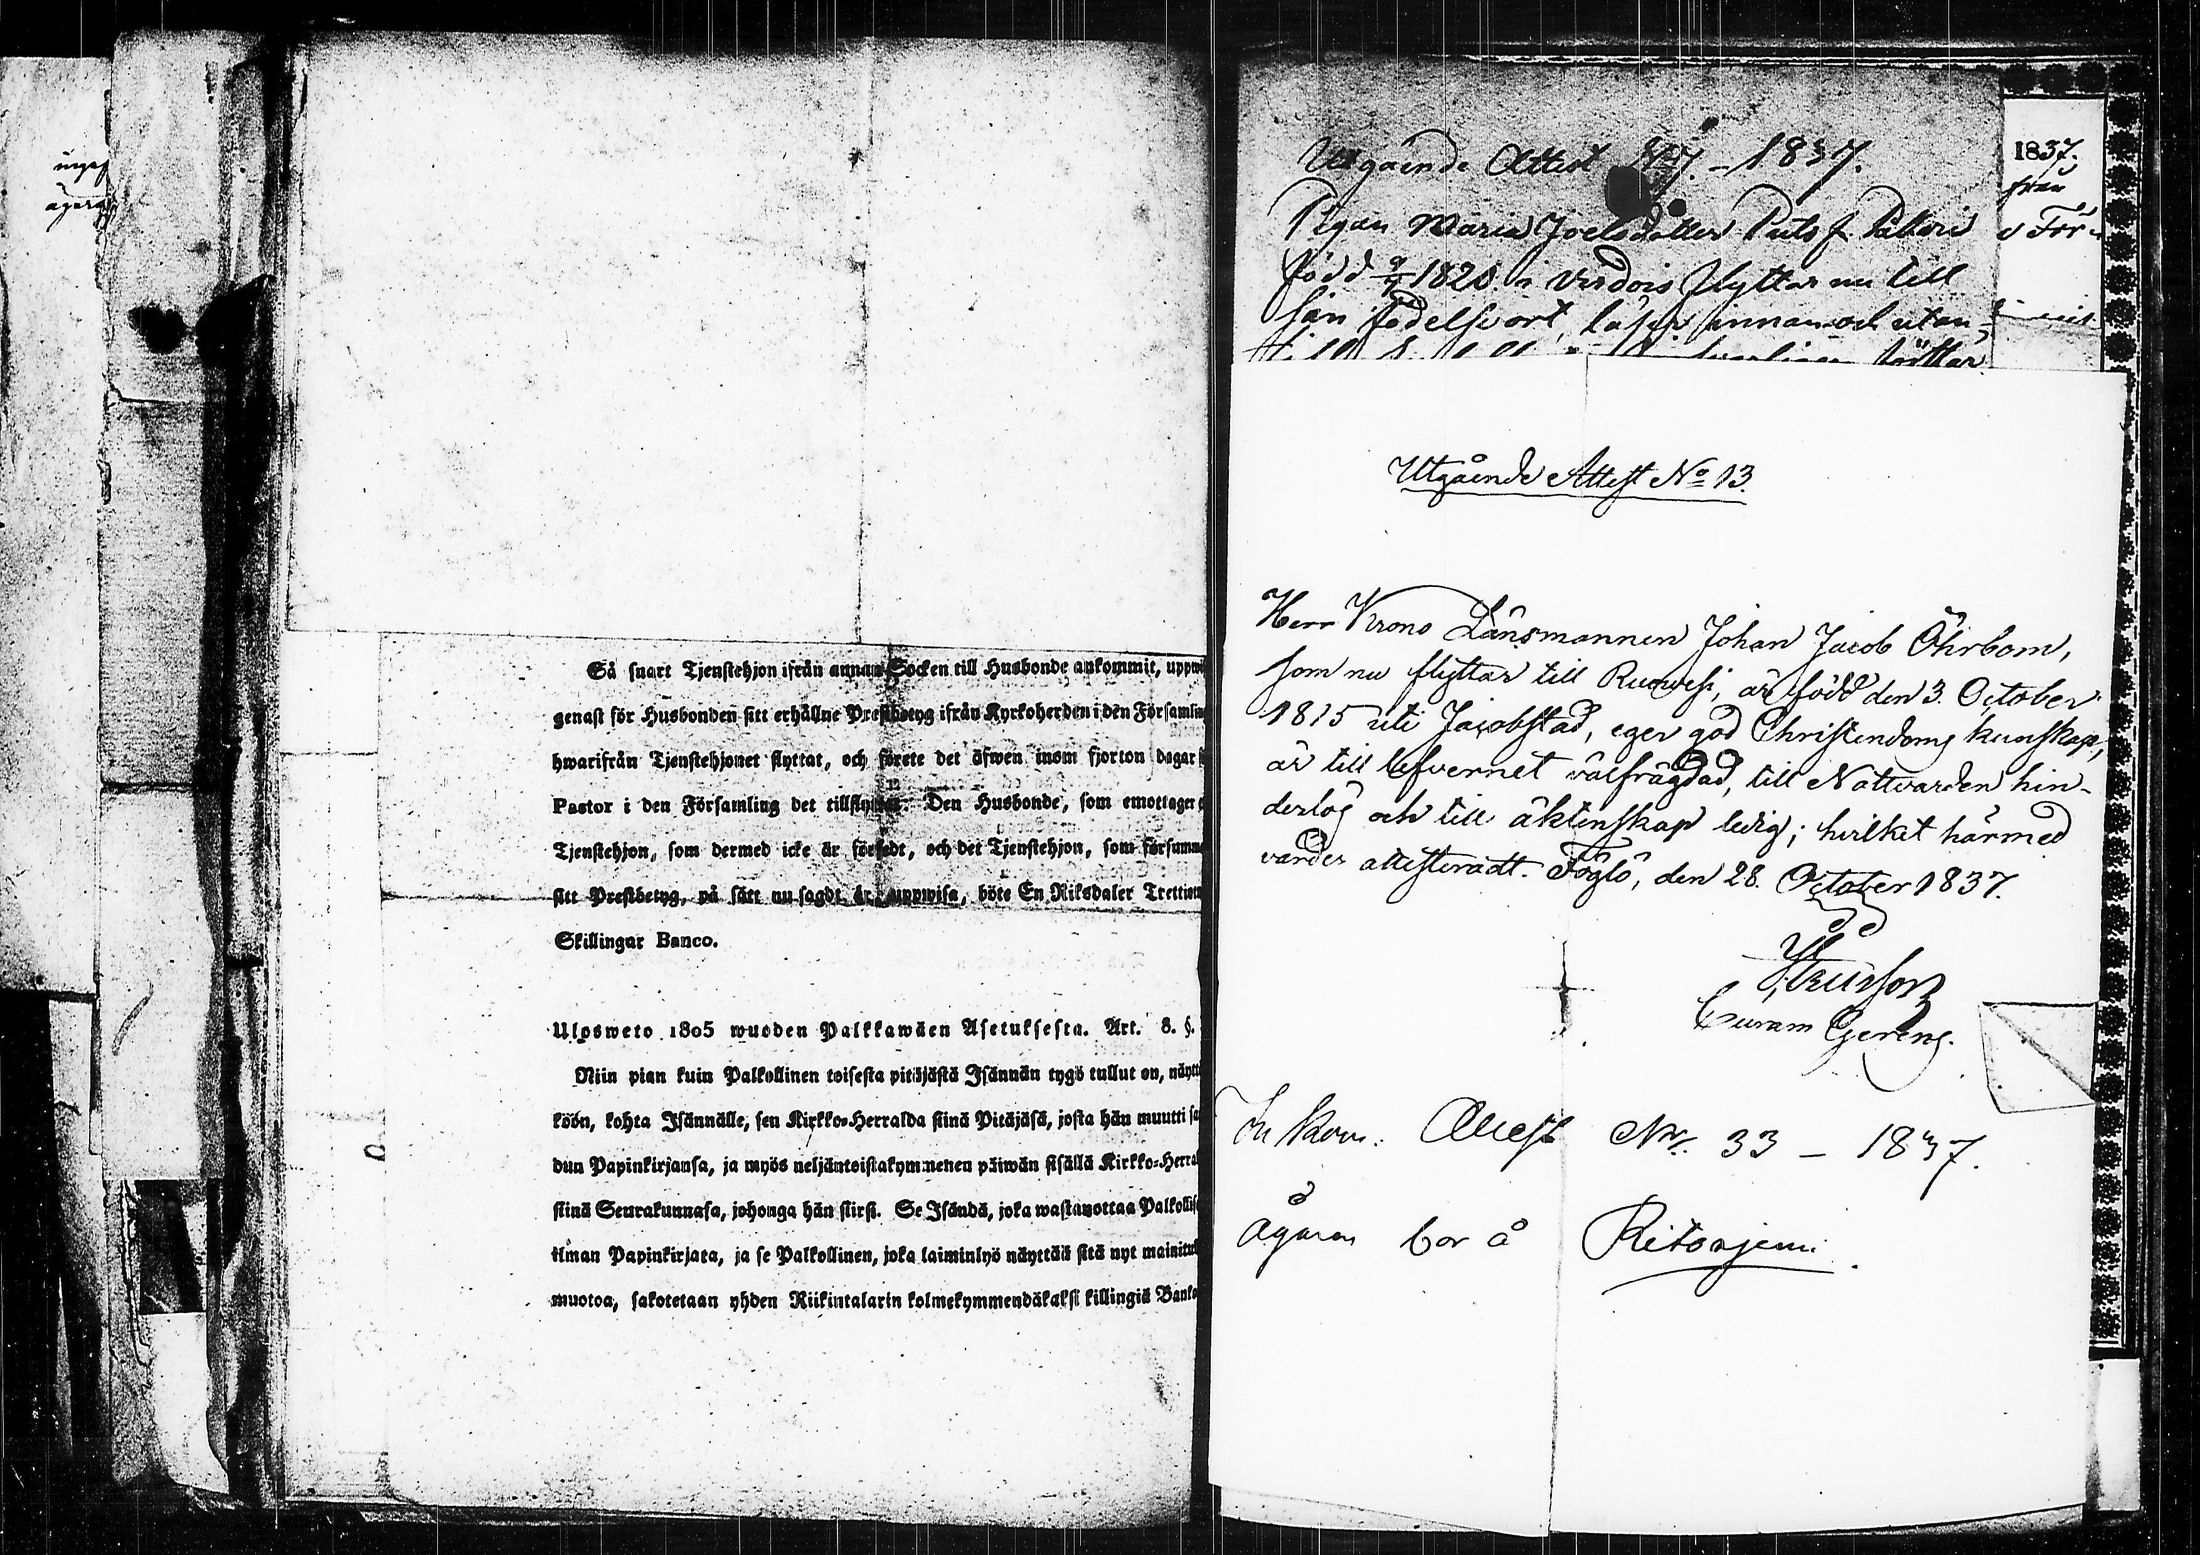 Så snart Tjenstehjon ifrån annan Socken till Husbonde ankommit, uppwi
genast för Husbonden sitt erhållne Prestbetyg ifrån Kyrkoherden i den Församlin
hwarifrån Tjenstehjonet flyttat, och förete det äfwen inom fjorton dagar
Pastor i den Församling det tillflyttat. Den Husbonde, som emottager
Tjenstehjon, som dermed icke är försedt, och det Tjenstehjon, som försumm
sitt Prestbetyg, på sätt nu sagdt är, uppwisa, böte En Riksdaler Trettiotw
Skillingar Banco.
Ulosweto 1805 wuoden Palkkawäen Asetuksesta. Art. 8. §.
Niin pian kuin Palkollinen toisesta pitäjästä Isännän tygö tullut on, näytt
köön, kohta Isännälle, sen Kirkko-Herralda siinä Pitäjäsä, josta hän muutti sa
dun Papinkirjansa, ja myös neljäntoistakymmenen päiwän sisällä Kirkko-Herra
siinä Seurakunnasa, johonga hän siirsi. Se Isändä, joka wastanottaa Palkollis
ilman Papinkirjata, ja se Palkollinen, joka laiminlyö näyttää sitä nyt mainitul
muotoa, sakotetaan yhden Riikintalarin kolmekymmendäkaksi killingiä Banko
Utgående Attest No 7. - 1837.
Pigan Maria Joelsdotter
född 1820 i Vårdois flyttar nu till
sin födelseort, läser innan och utan-
1837.
från
För-
Utgående Attest No 13.
Herr Krono Länsmannen Johan Jacob Öhrbom,
som nu flyttar till Ruovesi, är född den 3. October
1815 uti Jacobstad, eger god Christendoms kunskap,
är till lefvernet välfrägdad, till Nattvarden hin-
derlös och till äktenskap ledig; hvilket härmed
varder attesteradt. Föglö, den 28. October 1837.
Curam Gerens.
Inkom. Attest No. 33 - 1837.
Ägaren bor å Ritoniemi.